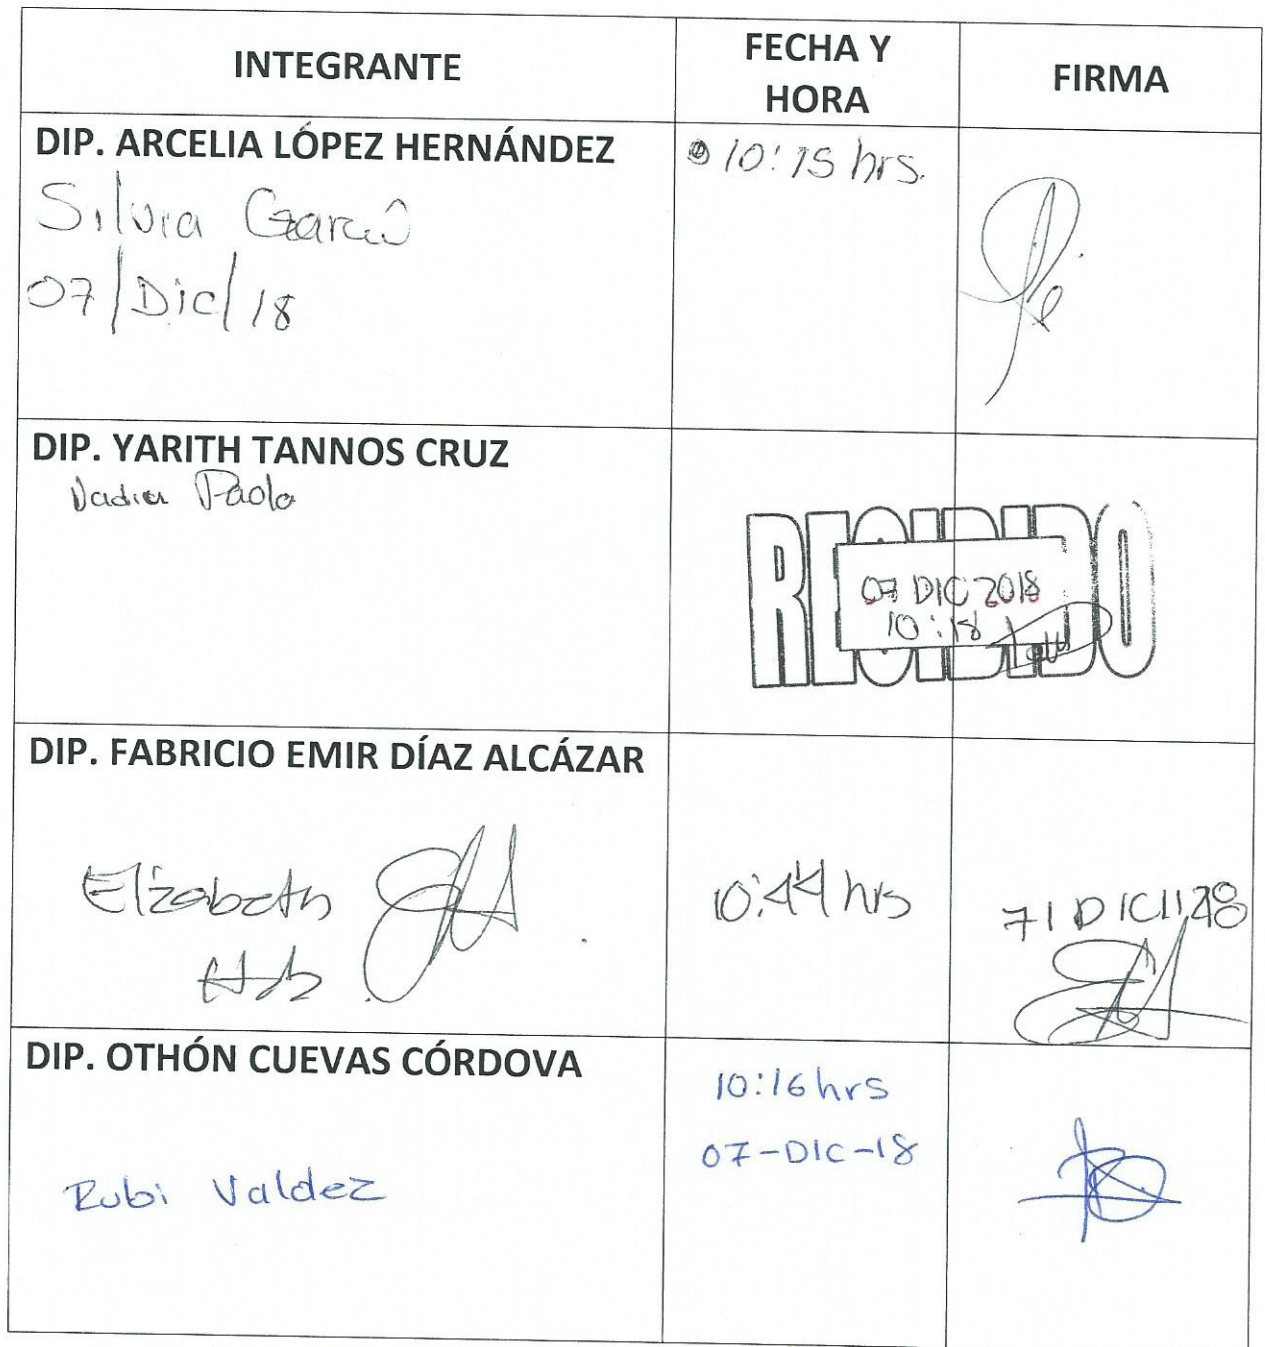 INTEGRANTE
FECHA Y
HORA
FIRMA
DIP. ARCELIA LÓPEZ HERNÁNDEZ
Silvia García
07/Dic/18
10:15 hrs.
DIP. YARITH TANNOS CRUZ
Nadia Paola
RECIBIDO
07 DIC 2018
10:18
DIP. FABRICIO EMIR DÍAZ ALCÁZAR
Elizabeth
10:44 hrs
DIP. OTHÓN CUEVAS CÓRDOVA
Rubi Valdez
10:16 hrs
07-DIC-18